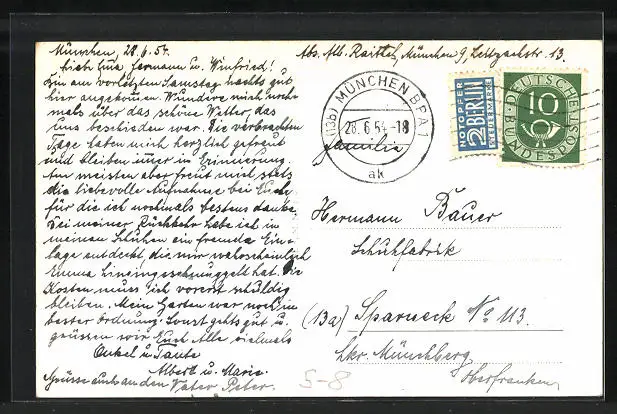 München, 28.6.54.
Liebe Eva, Hermann u. Winfried!
Bin am vorletzten Samstag nachts gut
hier angekommen. Wundere mich noch-
mals über das schöne Wetter, das
uns beschieden war. Die verbrachten
Tage haben mich herzlich gefreut
und bleiben immer in Erinnerung.
Am meisten aber freut mich stets
die liebevolle Aufnahme bei Euch,
für die ich nochmals bestens danke.
Bei meiner Rückkehr habe ich in
meinen Schuhen ein fremde Ein-
lage entdeckt die mir wahrscheinlich
Emma hineingeschmuggelt hat. Die
Kosten muss ich vorerst schuldig
bleiben. Mein Garten war noch in
bester Ordnung. Sonst gehts gut u.
grüssen wir Euch Alle vielmals
Onkel u. Tante
Albert u. Marie.
Grüsse auch an den Vater Peter.
Abs. Alb. Raithel, München 9, Leitzachstr. 13
(13b) MÜNCHEN BPA 1
28.6.54-18
ak
NOTOPFER
2 BERLIN
STEUERMARKE
DEUTSCHE
BUNDESPOST
10
Familie
Hermann Bauer
Schuhfabrik
(13a) Sparneck No 113.
Lkr. Münchberg
Oberfranken
S-8